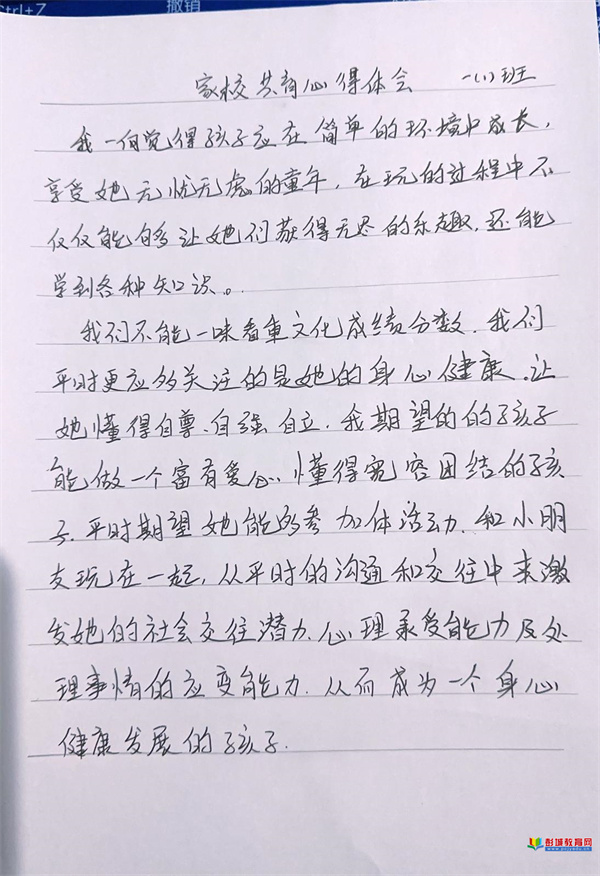 Ctrl+Z
撤销
家校共育心得体会 一(1)班
我一向觉得孩子应在简单的环境中成长,
享受她无忧无虑的童年,在玩的过程中不
仅仅能够让她们获得无尽的乐趣,还能
学到各种知识。
我们不能一味看重文化成绩分数.我们
平时更应多关注的是她的身心健康.让
她懂得自尊、自强 自立.我期望的的孩子
能做一个富有爱心、懂得宽容团结的孩
子.平时期望她能够参加体活动.和小朋
友玩在一起,从平时的沟通和交往中来激
发她的社会交往潜力、心理承受能力及处
理事情的应变能力.从而成为一个身心
健康发展的孩子.
彭城教育网